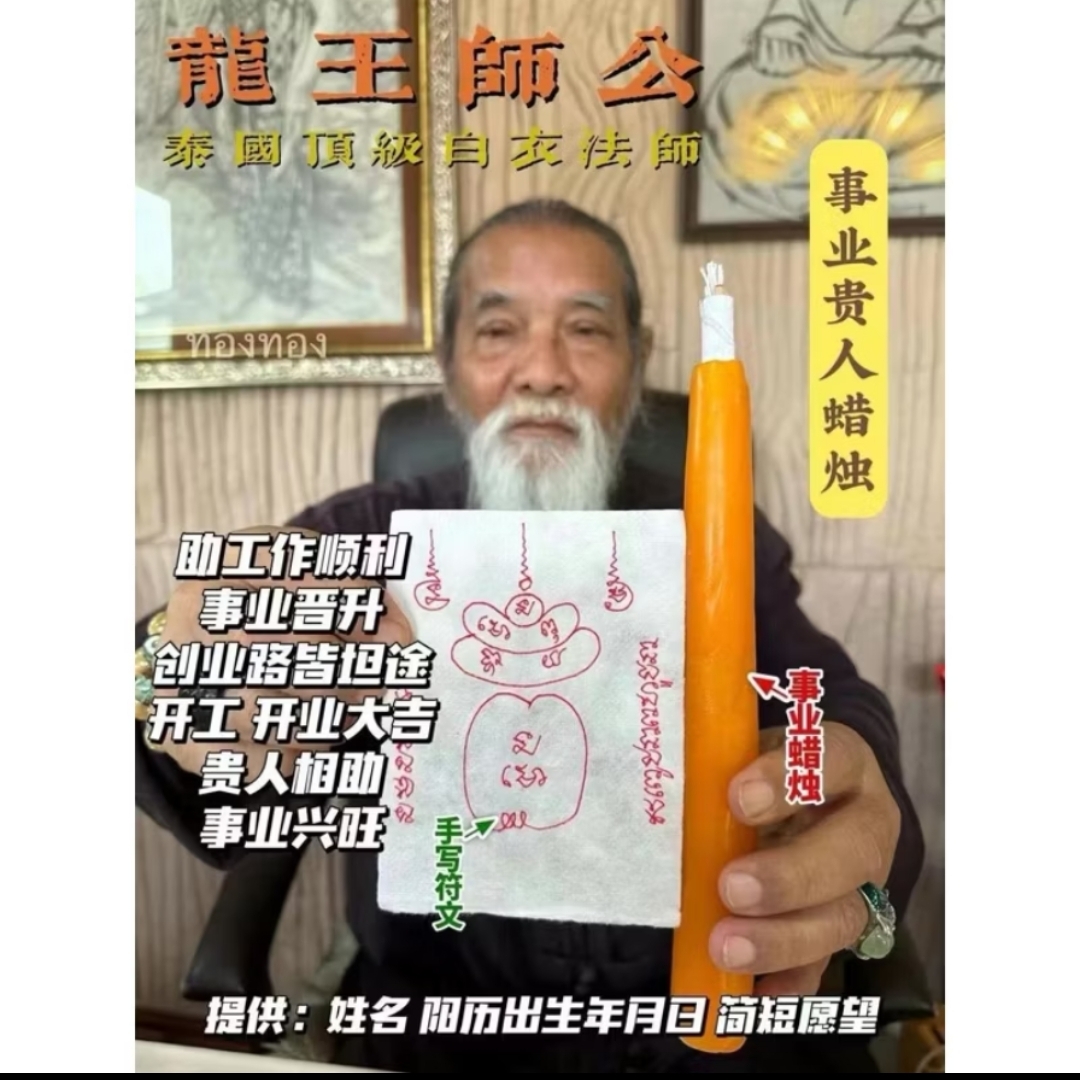 龍王師公
泰國頂級白衣法師
事业贵人蜡烛
ทองทอง
助工作顺利
事业晋升
创业路皆坦途
开工 开业大吉
贵人相助
事业兴旺
事业蜡烛
手写符文
提供：姓名 阳历出生年月日 简短愿望